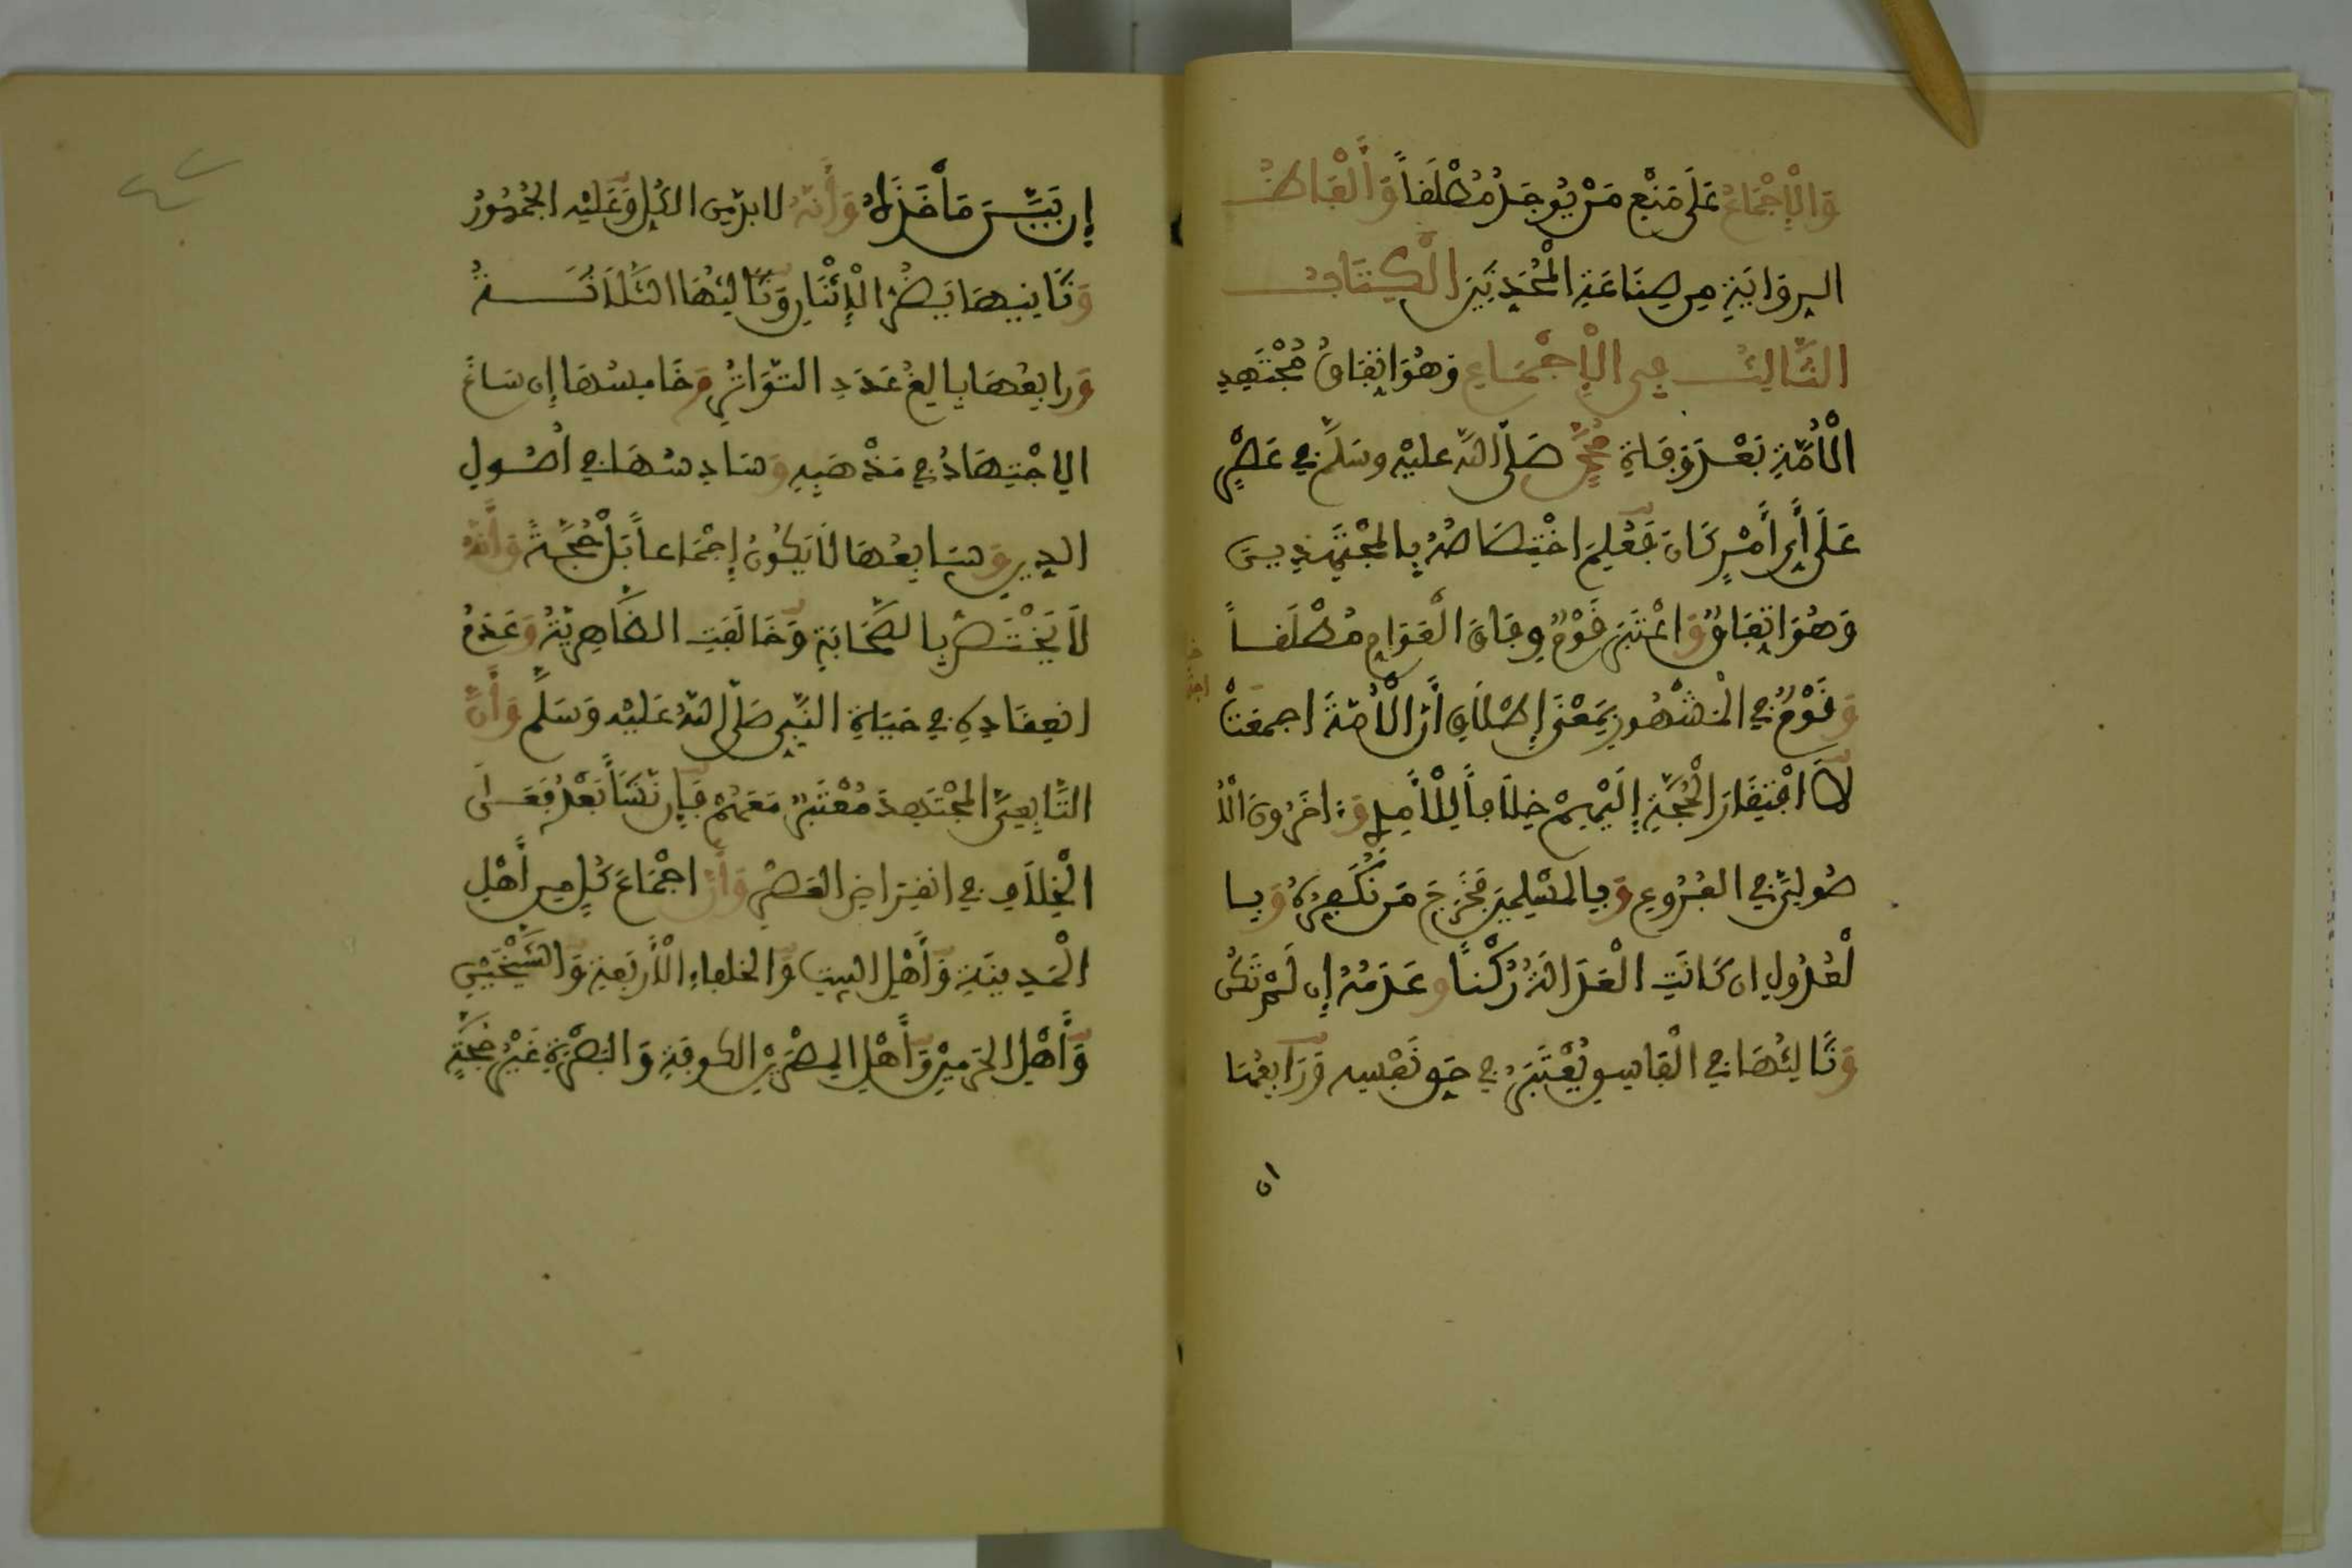 وَالْإِجْمَاعُ عَلَى مَنْعِ مَنْ يُوجَدُ مُطْلَقاً وَأَلْفَاظُ
الرِّوَايَةِ مِن صِنَاعَةِ الْمُحَدِّثِينَ الْكِتَابُ
الثَّالِثُ فِي الْإِجْمَاعِ وَهُوَ اتِّفَاقُ مُجْتَهِدِ
الْأُمَّةِ بَعْدَ وَفَاةِ مُحَمَّدٍ صَلَّى اللّهُ عليْهِ وسَلَّم في عَصْرٍ
عَلَى أَيِّ أَمْرٍ كَانَ فَعُلِمَ اخْتِصَاصُهُ بِالْمُجْتَهِدِينَ
وَهُوَ اتِّفَاقٌ وَاعْتَبَرَ قَوْمٌ وِفَاقَ الْعَوَامِ مُطْلَقاً
وَقَوْمٌ فِي الْمَشْهُورِ بِمَعْنَى إِطْلَاقِ أَنَّ الْأُمَّةَ اجمعَتْ
لَا افْتِقَارَ الْحُجَّةِ إِلَيْهِمْ خِلَافاً لِلْآمِدِي وَءَاخَرُونَ الْأُ
صُولِيَّ فِي الْفُرُوعِ وَبِالْمُسْلِمِينَ فَخَرَجَ مَن نُّكَفِّرُهُ وَبِا
لْعُدُولِ ان كَانَتِ الْعَدَالَةُ رُكْناً وَعَدَمُهُ إِن لَّمْ تَكُن
وَثَالِثُهَا فِي الْفَاسِقِ يُعْتَبَرُ فِي حَقِّ نَفْسِهِ وَرَابِعُهَا
ان
إِن بَيَّنَ مَأْخَذَهُ وَأَنَّهُ لَا بُدَّ مِنَ الْكُلِّ وَعَلَيْهِ الْجُمْهُورُ
وَثَانِيهَا يَضُرُّ الْإِثْنَانِ وَثَالِثُهَا الثَّلَاثَةُ
وَرابِعُهَا بِالِغُ عَدَدِ التَّوَاتُرِ وَخَامِسُهَا إِن سَاغَ
الِاجْتِهَادُ فِي مَذْهَبِهِ وَسَادِسُهَا فِي أُصُولِ
الدِّينِ وَسَابِعُهَا لَا يَكُونُ إِجْمَاعاً بَلْ حُجَّةً وَأَنَّهُ
لَا يَخْتَصُّ بِالصَّحَابَةِ وَخَالَفَتِ الظَّاهِرِيَّةُ وَعَدَمُ
انعِقَادِهِ فِي حَيَاةِ النَّبِيِّ صَلَّى اللّهُ عَلَيْهِ وَسَلَّمَ وَأَنَّ
التَّابِعِيَّ الْمُجْتَهِدَ مُعْتَبَرٌ مَعَهُمْ فَإِن نَّشَأَ بَعْدُ فَعَلَى
الْخِلَافِ فِي انْقِرَاضِ الْعَصْرِ وَأَنَّ اجْمَاعَ كُلٍّ مِنَ أَهْلِ
الْمَدِينَةِ وَأَهْلِ الْبَيْتِ وَالخلفاءِ الْأَرْبَعَةِ وَالشَّيْخَيْنِ
وَأَهْلِ الْحَرَمَيْنِ وَأَهْلِ الْمِصْرَيْنِ الْكُوفَةِ وَالْبَصْرَةِ غَيْرُ حُجَّةٍ